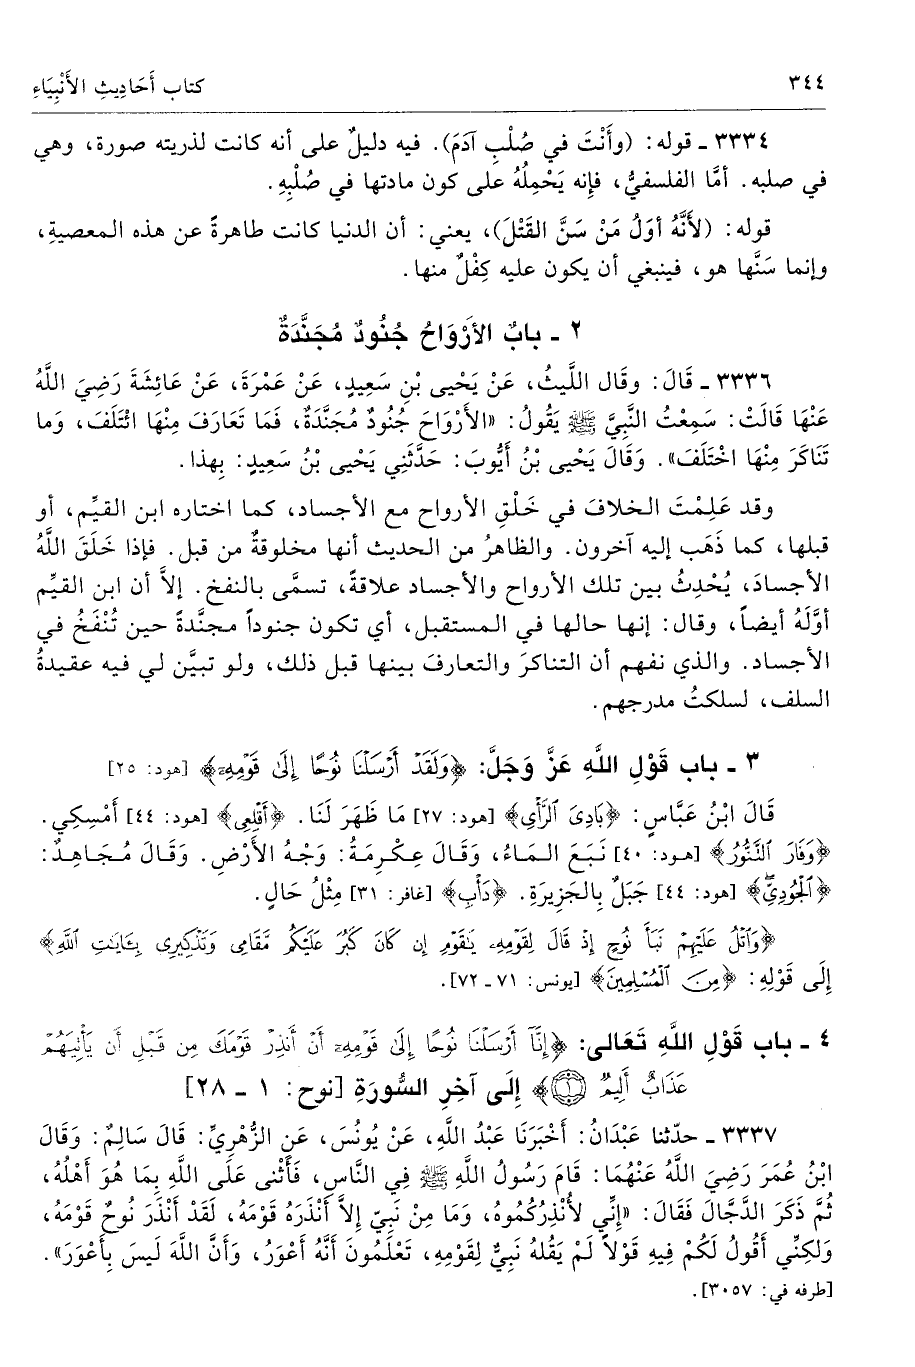 ٣٤٤ كتاب أَحَادِيثِ الأَنْبِيَاءِ
٣٣٣٤ ـ قوله: (وأَنْتَ في صُلْبِ آدَمَ). فيه دليلٌ على أنه كانت لذريته صورة، وهي
في صلبه. أمَّا الفلسفيُّ، فإنه يَحْمِلُهُ على كون مادتها في صُلْبِهِ.
قوله: (لأَنَّهُ أوَلُ مَنْ سَنَّ القَتْلَ)، يعني: أن الدنيا كانت طاهرةً عن هذه المعصيةِ،
وإنما سَنَّها هو، فينبغي أن يكون عليه كِفْلٌ منها.
٢ ـ بابٌ الأَرْوَاحُ جُنُودٌ مُجَنَّدَةٌ
٣٣٣٦ ـ قَالَ: وقَال اللَّيثُ، عَنْ يَحْيى بْنِ سَعِيدٍ، عَنْ عَمْرَةَ، عَنْ عَائِشَةَ رَضِيَ اللَّهُ
عَنْهَا قَالَتْ: سَمِعْتُ النَّبِيَّ ﷺ يَقُولُ: «الأَرْوَاحُ جُنُودٌ مُجَنَّدَةٌ، فَمَا تَعَارَفَ مِنْهَا ائْتَلَفَ، وَما
تَنَاكَرَ مِنْهَا اخْتَلَفَ». وَقَالَ يَحْيى بْنُ أَيُّوبَ: حَدَّثَنِي يَحْيى بْنُ سَعِيدٍ: بِهذا.
وقد عَلِمْتَ الخلافَ في خَلْقِ الأرواح مع الأجساد، كما اختاره ابن القيِّم، أو
قبلها، كما ذَهَب إليه آخرون. والظاهرُ من الحديث أنها مخلوقةٌ من قبل. فإذا خَلَقَ اللَّهُ
الأجسادَ، يُحْدِثُ بين تلك الأرواح والأجساد علاقةً، تسمَّى بالنفخ. إلاَّ أن ابن القيِّم
أوَّلَهُ أيضاً، وقال: إنها حالها في المستقبل، أي تكون جنوداً مجنَّدةً حين تُنْفَخُ في
الأجساد. والذي نفهم أن التناكرَ والتعارفَ بينها قبل ذلك، ولو تبيَّن لي فيه عقيدةُ
السلف، لسلكتُ مدرجهم.
٣ ـ باب قَوْلِ اللَّهِ عَزَّ وَجَلَّ: ﴿وَلَقَدْ أَرْسَلْنَا نُوحًا إِلَىٰ قَوْمِهِۦٓ﴾ [هود: ٢٥]
قَالَ ابْنُ عَبَّاسٍ: ﴿بَادِىَ ٱلرَّأْىِ﴾ [هود: ٢٧] مَا ظَهَرَ لَنَا. ﴿أَقْلِعِى﴾ [هود: ٤٤] أَمْسِكِي.
﴿وَفَارَ ٱلتَّنُّورُ﴾ [هود: ٤٠] نَبَعَ المَاءُ، وَقَالَ عِكْرِمَةُ: وَجْهُ الأَرْضِ. وَقَالَ مُجَاهِدٌ:
﴿ٱلْجُودِيِّۖ﴾ [هود: ٤٤] جَبَلٌ بِالجَزِيرَةِ. ﴿دَأْبِ﴾ [غافر: ٣١] مِثْلُ حَالِ.
﴿وَٱتْلُ عَلَيْهِمْ نَبَأَ نُوحٍ إِذْ قَالَ لِقَوْمِهِۦ يَٰقَوْمِ إِن كَانَ كَبُرَ عَلَيْكُم مَّقَامِى وَتَذْكِيرِى بِـَٔايَٰتِ ٱللَّهِ﴾
إِلَى قَوْلِهِ: ﴿مِنَ ٱلْمُسْلِمِينَ﴾ [يونس: ٧١ ـ ٧٢].
٤ ـ باب قَوْلِ اللَّهِ تَعَالى: ﴿إِنَّآ أَرْسَلْنَا نُوحًا إِلَىٰ قَوْمِهِۦٓ أَنْ أَنذِرْ قَوْمَكَ مِن قَبْلِ أَن يَأْتِيَهُمْ
عَذَابٌ أَلِيمٌ ١﴾ إِلَى آخِرِ السُّورَةِ [نوح: ١ ـ ٢٨]
٣٣٣٧ ـ حدّثنا عَبْدَانُ: أَخْبَرَنَا عَبْدُ اللَّهِ، عَنْ يُونُسَ، عَنِ الزُّهْرِيِّ: قَالَ سَالِمٌ: وَقَالَ
ابْنُ عُمَرَ رَضِيَ اللَّهُ عَنْهُمَا: قَامَ رَسُولُ اللَّهِ ﷺ فِي النَّاسِ، فَأَثْنى عَلَى اللَّهِ بِمَا هُوَ أَهْلُهُ،
ثُمَّ ذَكَرَ الدَّجَّالَ فَقَالَ: «إِنِّي لأُنْذِرُكُمُوهُ، وَمَا مِنْ نَبِيّ إِلاَّ أَنْذَرَهُ قَوْمَهُ، لَقَدْ أَنْذَرَ نُوحٌ قَوْمَهُ،
وَلكِنِّي أَقُولُ لَكُمْ فِيهِ قَوْلاً لَمْ يَقُلهُ نَبِيٌّ لِقَوْمِهِ، تَعْلَمُونَ أَنَّهُ أَعْوَرُ، وَأَنَّ اللَّهَ لَيسَ بِأَعْوَرَ».
[طرفه في: ٣٠٥٧].